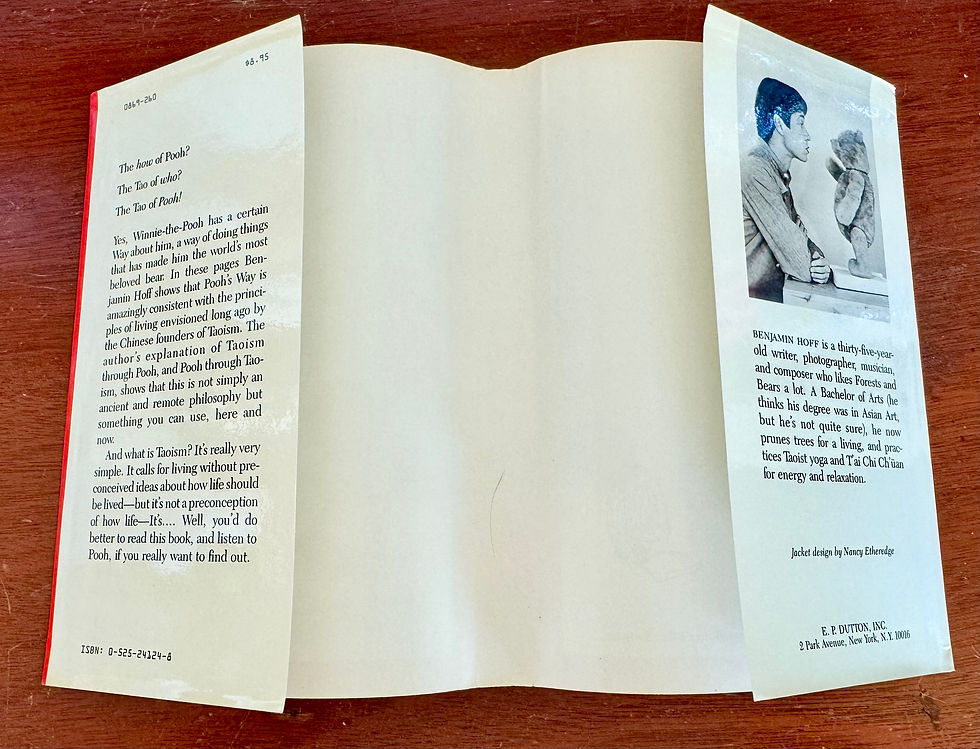 $8.95
0869-260
The how of Pooh?
The Tao of who?
The Tao of Pooh!
Yes, Winnie-the-Pooh has a certain
Way about him, a way of doing things
that has made him the world's most
beloved bear. In these pages Ben-
jamin Hoff shows that Pooh's Way is
amazingly consistent with the princi-
ples of living envisioned long ago by
the Chinese founders of Taoism. The
author's explanation of Taoism
through Pooh, and Pooh through Tao-
ism, shows that this is not simply an
ancient and remote philosophy but
something you can use, here and
now.
And what is Taoism? It's really very
simple. It calls for living without pre-
conceived ideas about how life should
be lived—but it's not a preconception
of how life—It's.... Well, you'd do
better to read this book, and listen to
Pooh, if you really want to find out.
ISBN: 0-525-24124-8
BENJAMIN HOFF is a thirty-five-year-
old writer, photographer, musician,
and composer who likes Forests and
Bears a lot. A Bachelor of Arts (he
thinks his degree was in Asian Art,
but he's not quite sure), he now
prunes trees for a living, and prac-
tices Taoist yoga and T'ai Chi Ch'üan
for energy and relaxation.
Jacket design by Nancy Etheredge
E. P. DUTTON, INC.
2 Park Avenue, New York, N.Y. 10016